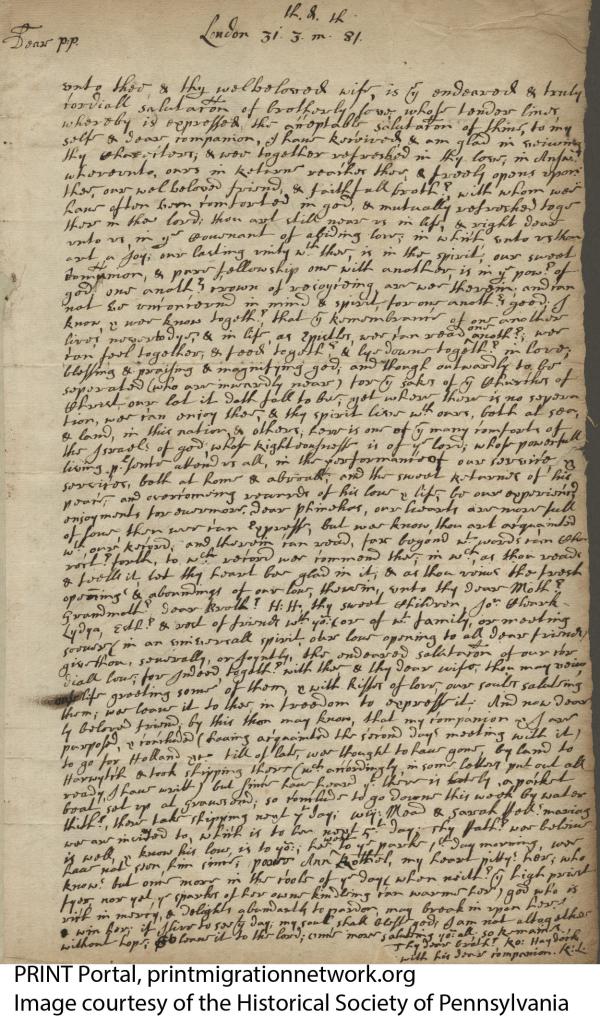 th. d. th
London 31. 3. m. 81.
Dear p.p.
vnto thee & thy welbeloved wife, is ye endeared & truly
cordiall salutation of brotherly love whose tender lines
whereby is expressed, the acceptable salutation of thine, to my
self & dear companion, I have received & am glad in
thy & wee together refreshed in thy love, in
whereunto, ours in returne reaches thee, & freely opens
thee, our wel beloved friend, & faithfull broth: with whom wee
have often been comforted in god, & mutually refreshed toge
ther in the lord; thou art still near vs in life, & right dear
vnto vs, in ye Covenant of abiding love; in which vnto vs thou
art a Joy; our lasting vnity wth thee, is in the spirit, our sweet
Communion, & pure fellowship one with another, is in ye pow: of
god; one anoth:s crown of rejoyceing, are wee therein; and can
not be unconcernd in mind & spirit, for one anoth:s good; I
know, & wee know togeth: that ye remembrance of one another
lives & in life, as Epistles, wee can read one anoth: wee
can feel together, & feed togeth: & lye downe togeth: in love;
blessing & praising & magnifying god; and though outwardly to be
seperated (who are inwardly near) for ye sakes of ye Churches of
Christ our lot it doth fall to be; yet where there is no sepera
tion, wee can enjoy thee, & thy spirit live wth ours, both at sea,
& land, in this nation, & others; here is one of ye many comforts of
the Israel of god, whose righteousness is of ye lord; whose powerfull
living p:sence attend vs all, in the performance of our service &
services, both at home & abroad; and the sweet returnes of his
peace, and overcoming rewards of his love & life, be our experienced
enjoyments for evermore, dear phinehas, our hearts are more full
of love then wee can Express, But wee know, thou art acquainted
wth our record, and therein can read, far beyond wt words can
forth, to wch record wee commend thee, in wch as thou reads
& feells it let thy heart bee glad in it, & as thou the fresh
openings & aboundings of our love, therein, vnto thy dear Moth:
Grandmoth: dear Broth: H: H: thy sweet Children, Jo: Clark
Lydya, Edth: & rest of friends wth yo: (or of family, or meeting
soever) in an universall spirit, our love opening to all dear friends
give thou, severally, or Joyntly, the endeared salutation of our cor
diall love; for Indeed togeth: with thee & thy dear wife, thou may
life greeting some of them, & with kisses of love, our souls saluting
them; wee leave it to thee, in freedom to express it; And now dear
ly beloved friend, by this thou may know, that my companion & I are
purposed, & concluded (haveing acquainted the second days meeting with it)
to go for Holland till of late, wee thought to have gone, by land to
Harwitch & took shipping there (wch accordingly in some letters put out all
ready, I have writt) but since have heard yt there is lately a packet
boat, set up at Gravesend; so conclude to go downe this week by water
thith:, there take shipping next day; Mead & Sarah
we are invited to, which is to be next 5th day, thy Fath: wee believe
is well, & know his love, is to yo:; parke, day morning, wee
have not seen him since; poore Ann my heart pitty: her; who
know: but one more in the cools of ye day, when neith: ye high priest
nor yet ye sparks of her owne kindling can warme her) god who is
rich in mercy, & delights abundantly to pardon, may break in vpon her
& win her; if I live to see yt day; my soul shall bless god; I am not altogether
without hope, leave it to the lord; once more saluting yo: all, so remaine
Thy dear broth: Ro: Haydock
with his dear companion. R: L.
PRINT Portal, printmigrationnetwork.org
Image courtesy of the Historical Society of Pennsylvania